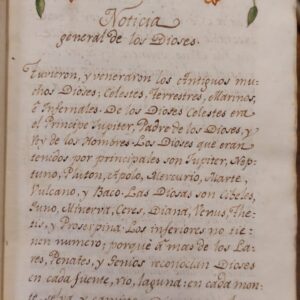 Noticia
general de los Dioses.
Tuvieron, y veneraron los Antiguos mu-
chos Dioses; Celestes, Terrestres, Marinos,
ò Infernales. De los Dioses Celestes era
el Principe Jupiter, Padre de los Dioses, y
Rey de los Hombres. Los Dioses que eran
tenidos por principales son Jupiter, Nep-
tuno, Pluton, Apolo, Mercurio, Marte,
Vulcano, y Baco. Las Diosas son Cibeles,
Juno, Minerva, Ceres, Diana, Venus, The-
tis, y Proserpina. Los inferiores no tie-
nen numero; porquè à mas de los La-
res, Penates, y Genios reconocian Dioses
en cada fuente, rio, laguna; en cada mon-
te, selva, y camino